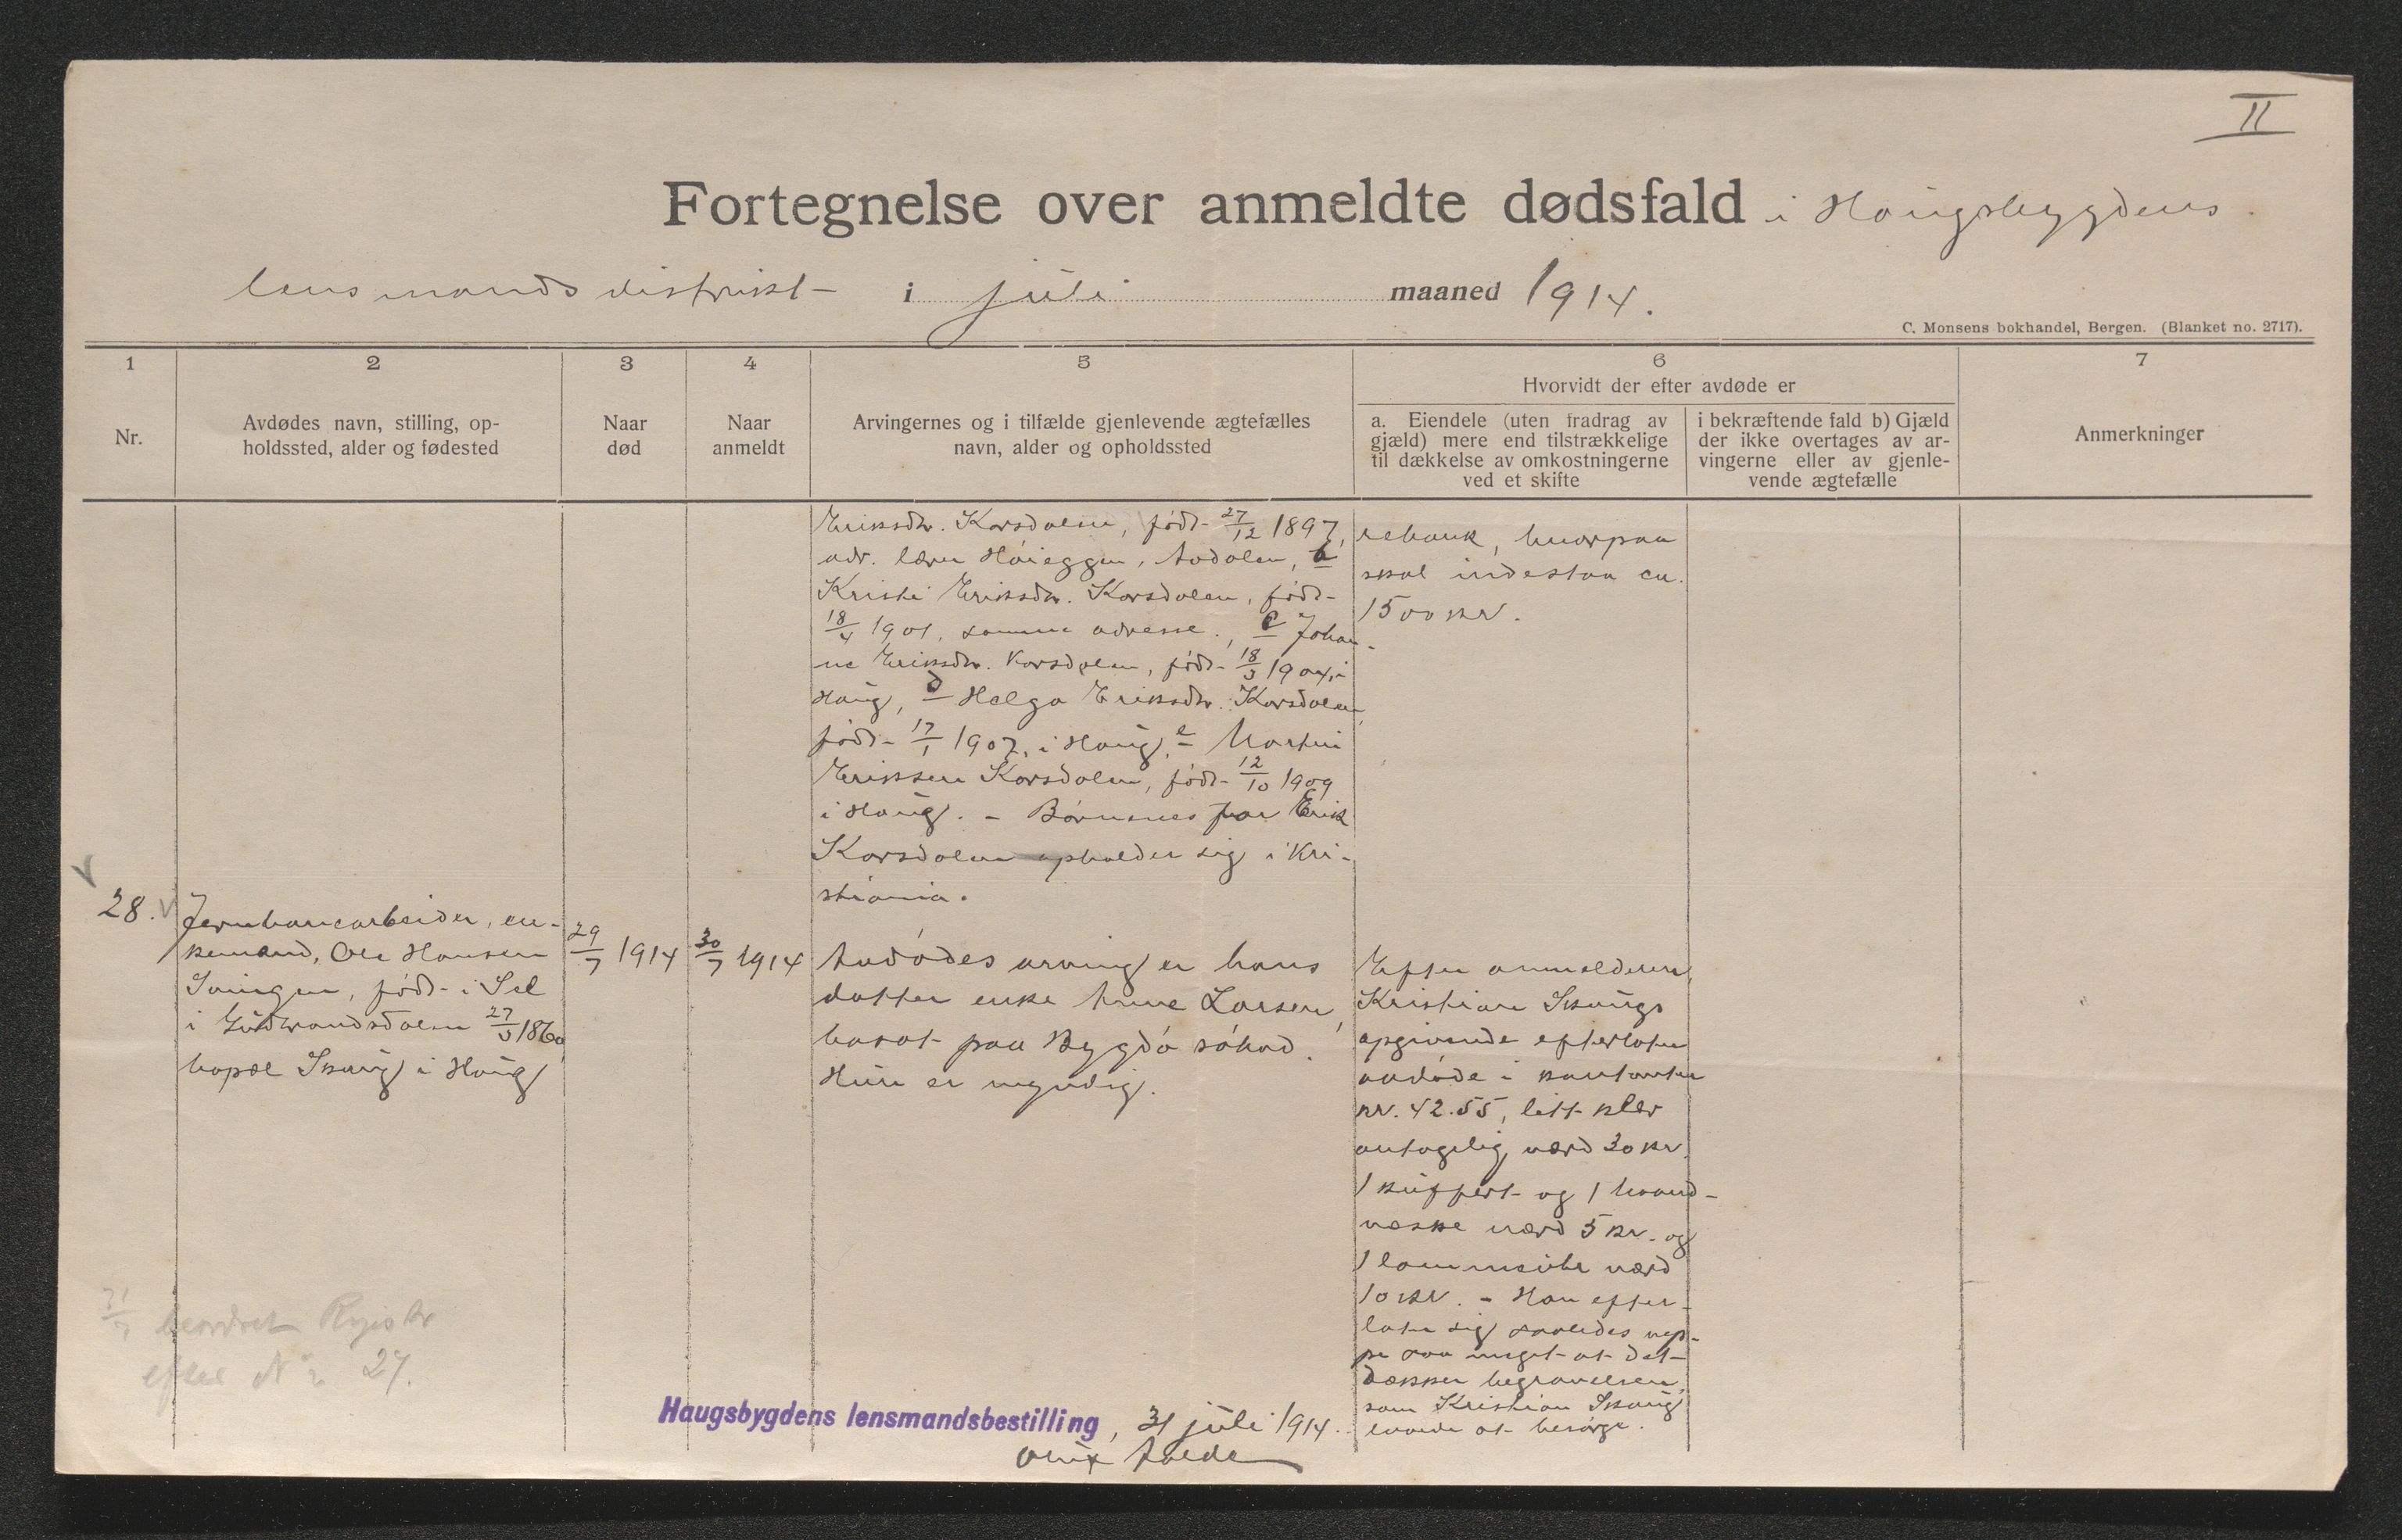 II
Fortegnelse over anmeldte dødsfald i Haugsbygdens
lensmandsdistrikt i juli maaned 1914.
C. Monsens bokhandel, Bergen. (Blanket no. 2717).
1
2
3
4
5
6
7
Nr.
Avdødes navn, stilling, op-
holdssted, alder og fødested
Naar
død
Naar
anmeldt
Arvingernes og i tilfælde gjenlevende ægtefælles
navn, alder og opholdssted
Hvorvidt der efter avdøde er
a. Eiendele (uten fradrag av
gjæld) mere end tilstrækkelige
til dækkelse av omkostningerne
ved et skifte
i bekræftende fald b) Gjæld
der ikke overtages av ar-
vingerne eller av gjenle-
vende ægtefælle
Anmerkninger
Eriksdtr. Korsdalen, født 27/12 1897,
adr. Høieggen, Aadalen, b
Kristi Eriksdtr. Korsdalen, født
18/4 1901, samme adresse., c Johan-
ne Eriksdtr. Korsdalen, født 18/3 1904, i
Haug, d Helga Eriksdtr. Korsdalen,
født 17/1 1907, i Haug, e Martin
Eriksen Korsdalen, født 12/10 1909
i Haug. - Børnenes far Erik
Korsdalen opholder sig i Kri-
stiania.
rebank, hvorpaa
skal indestaa ca.
1500 kr.
28.
Jernbanearbeider, en-
kemand, Ole Hansen
født i Sel
i Gudbrandsdalen 27/3 1860
bopæl Skaug i Haug
29/7 1914
30/7 1914
Avdødes arving er hans
datter enke Anne Larsen,
bosat paa Bygdø søbad.
Hun er myndig.
Efter anmelderen,
Kristian Skaugs
opgivende efterlater
avdøde i kontanter
kr. 42.55, litt klær
antagelig værd 30 kr,
1 kuffert og 1 haand-
væske værd 5 kr. og
1 lommeur værd
10 kr. - Han efter-
later sig saaledes nep-
pe saa meget at det
dækker begravelsen,
som Kristian Skaug
lovede at besørge.
31/7 beordret Registr
efter Nr 27.
Haugsbygdens lensmandsbestilling, 31 juli 1914.